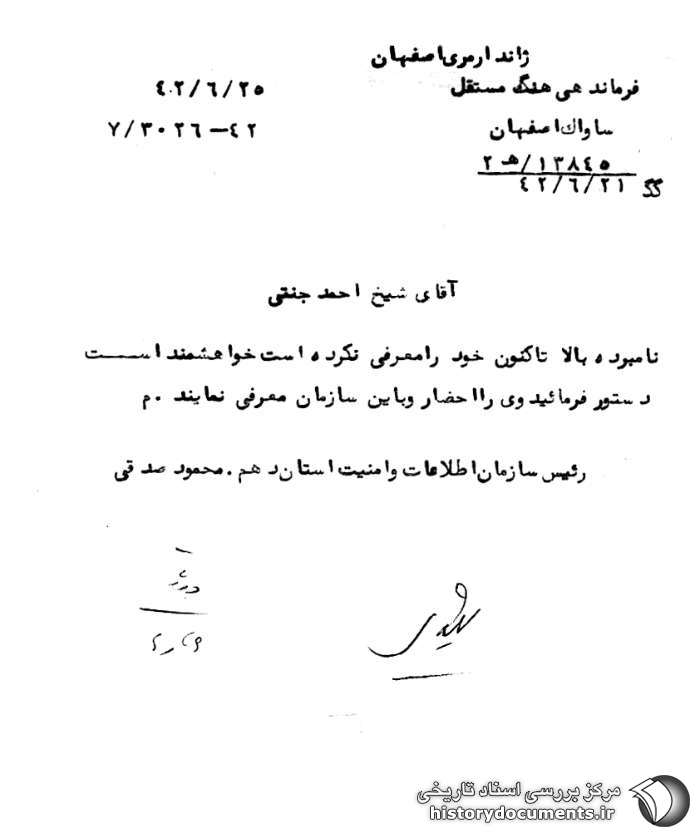 ژاندارمری اصفهان
فرماندهی هنگ مستقل ۴۰۲/۶/۲۵
ساواک اصفهان ۴۲-۷/۳۰۲۶
۱۳۸٤٥/هـ ۲
گگ ٤۲/۶/۲۱
آقای شیخ احمد جنتی
نامبوده بالا تاکنون خود را معرفی نکرده است خواهشمند است
دستور فرمائید وی را احضار و باین سازمان معرفی نمایند .م
رئیس سازمان اطلاعات و امنیت استان دهم . محمود صدقی
مرکز بررسی اسناد تاریخی
historydocuments.ir